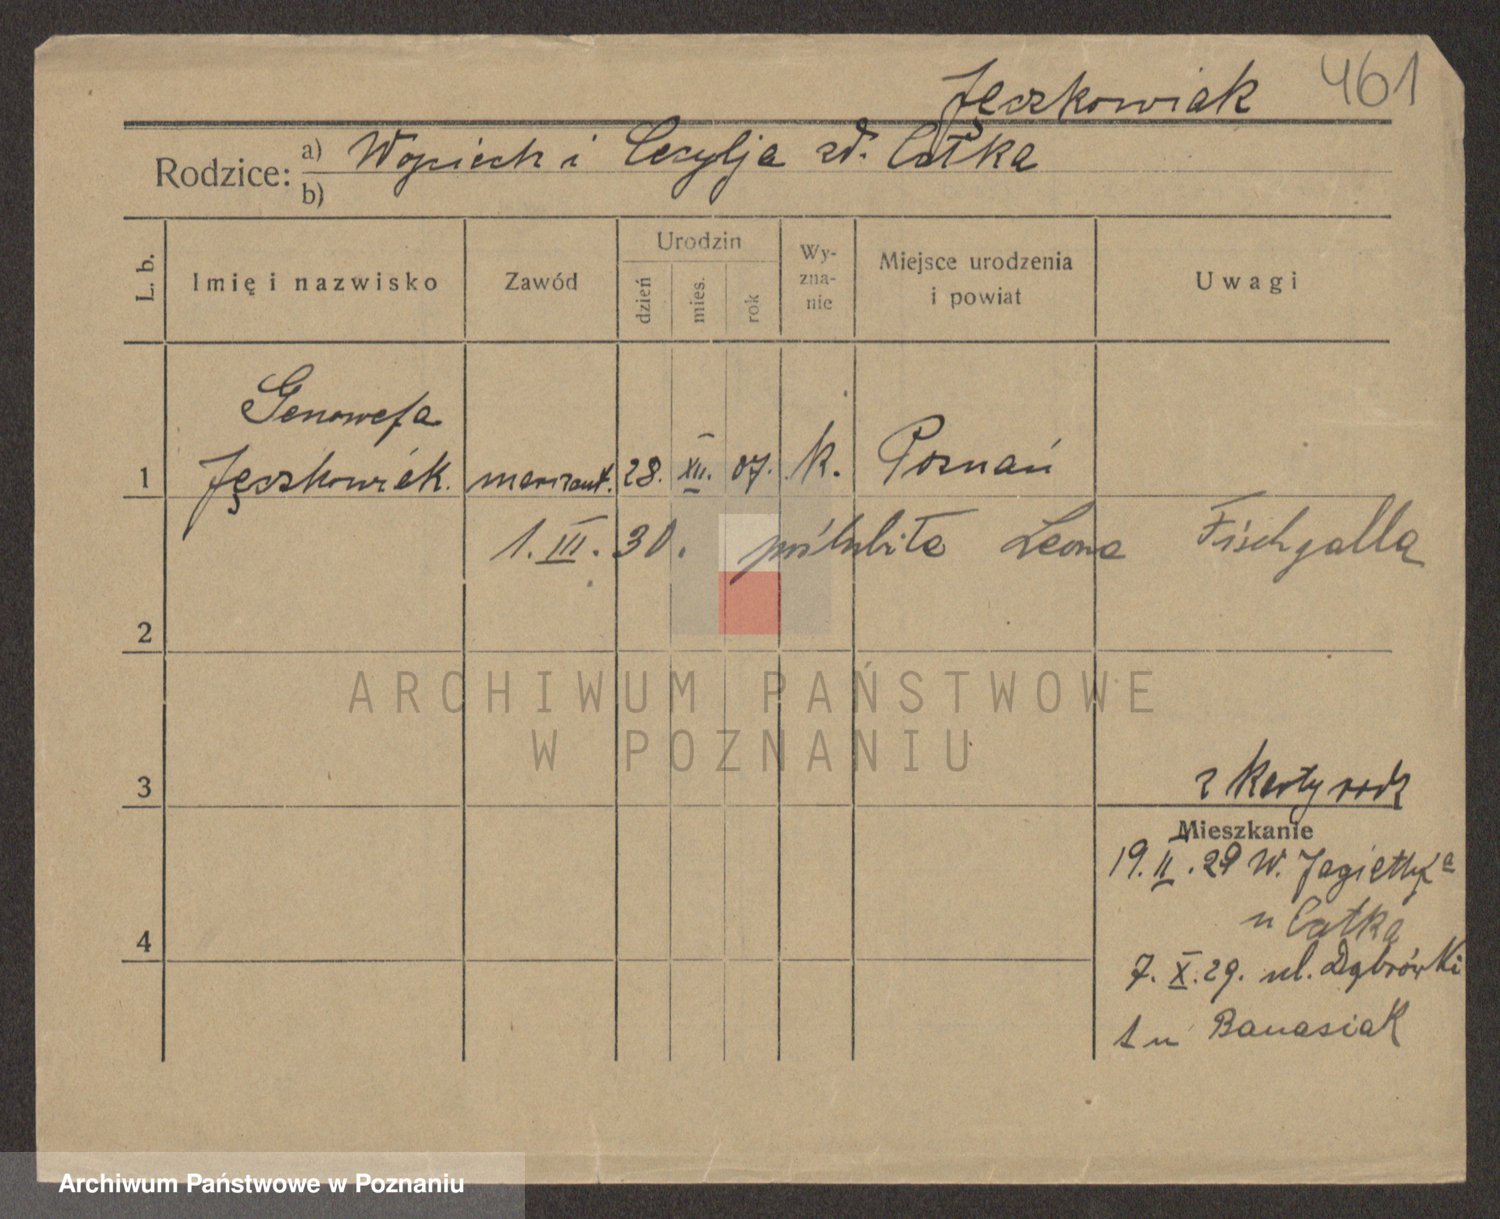 Jęczkowiak 461
Rodzice: a) Wojciech i Cecylja zd. Całka
b)
L. b. Imię i nazwisko Zawód Urodzin dzień mies. rok Wy-zna-nie Miejsce urodzenia i powiat Uwagi
Genowefa
1 Jęczkowiak. 28. XII. 07. k. Poznań
1. III. 30. poślubiła Leona Fischgalla
2
ARCHIWUM PAŃSTWOWE
W POZNANIU
z karty rodz
3
Mieszkanie
19. II. 29 W.
u Całka
4
7. X. 29. ul. Dąbrówki
1 u Banasiak
Archiwum Państwowe w Poznaniu